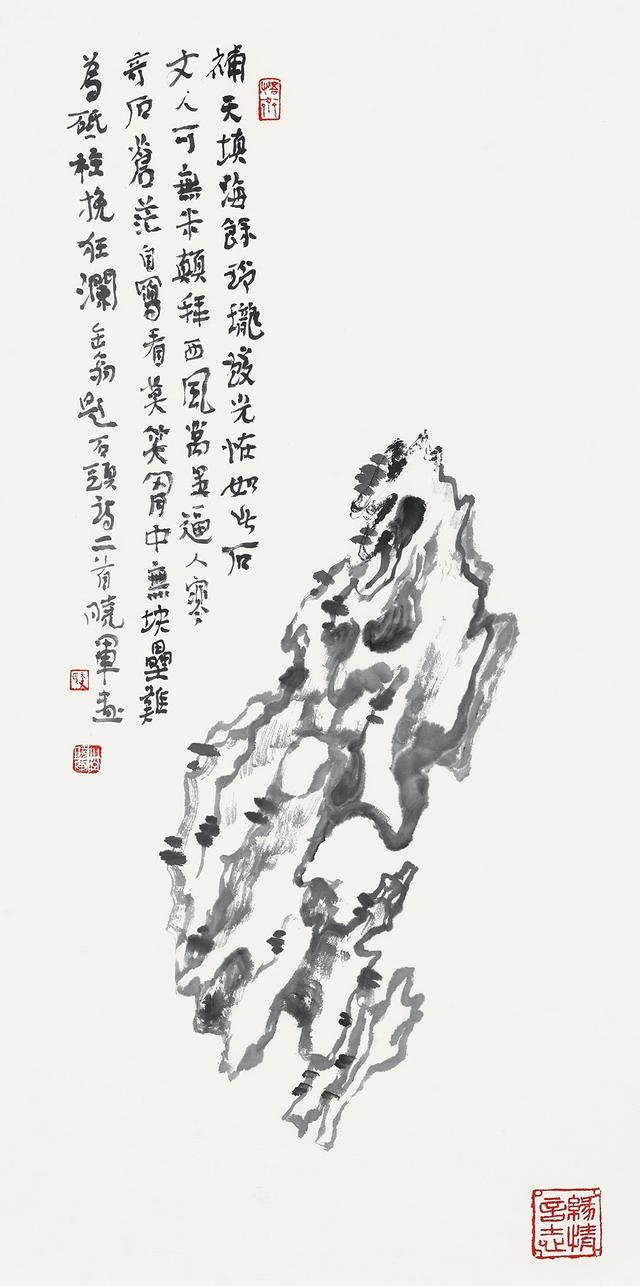 補天填海餘玲瓏發光怪如此石
文人可無米顛拜西風萬里逼人寒
奇石蒼茫自寫看莫笑胷中無塊壘難
為砥柱挽狂瀾缶翁題石頭詩二首曉軍畫
緣情言志